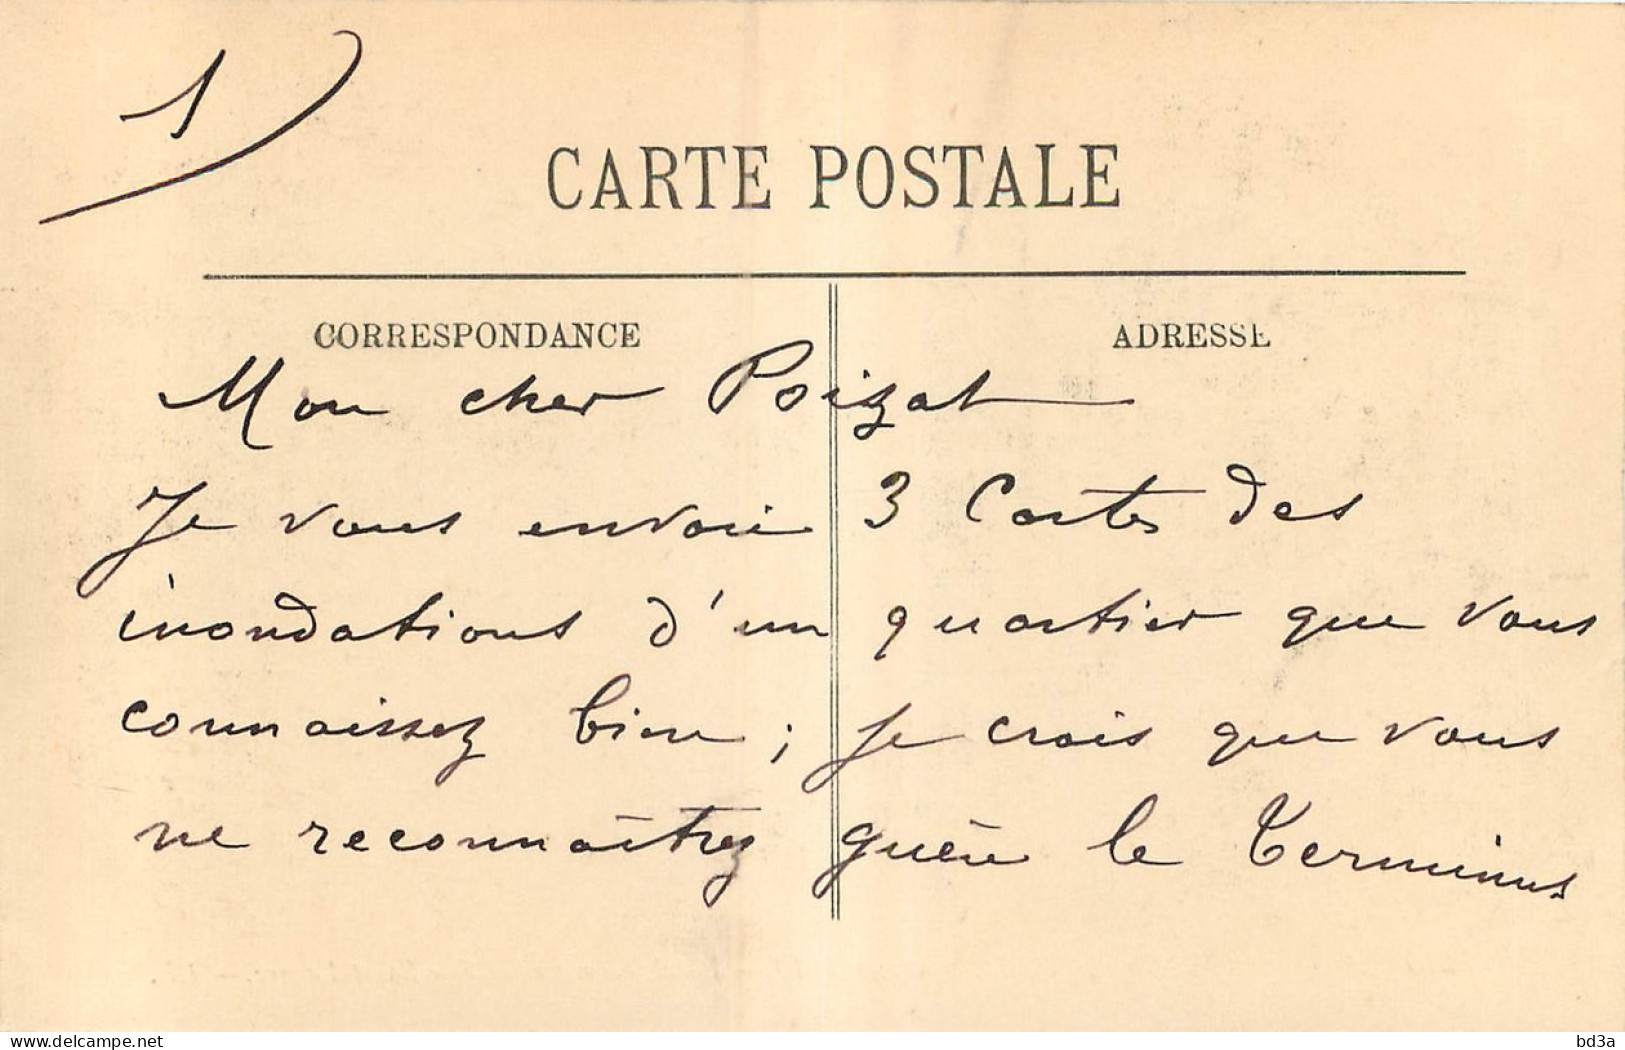 1
CARTE POSTALE
CORRESPONDANCE
ADRESSE
Mon cher Poizat
Je vous envoie 3 Cartes des
inondations d'un quartier que vous
connaissez bien ; je crois que vous
ne reconnaîtrez guère le Terminus
delcampe.net
bd3a